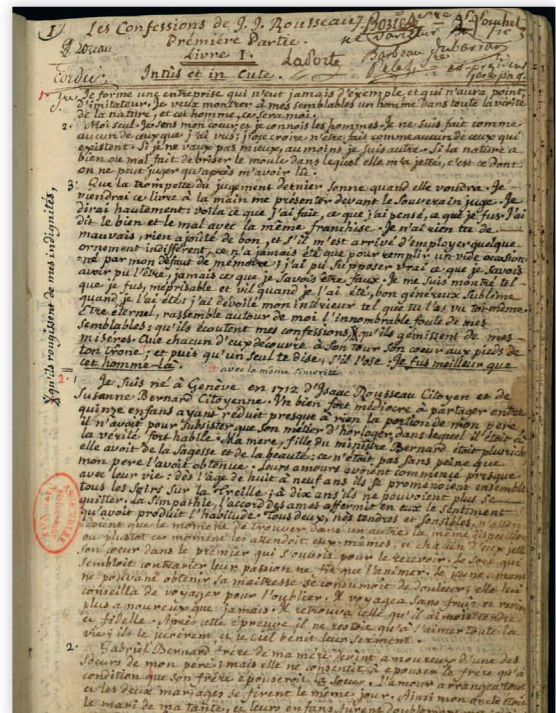 (1) Les Confessions de J. J. Rousseau.
Prémiére Partie.
Livre I.
Intùs et in Cute.
1. Je forme une entreprise qui n'eut jamais d'exemple, et qui n'aura point
d'imitateur. Je veux montrer à mes semblables un homme dans toute la vérité
de la nature, et cet homme, ce sera moi.
2. Moi seul. Je sens mon cœur, et je connois les hommes. Je ne suis fait comme
aucun de ceux que j'ai vus ; j'ose croire n'être fait comme aucun de ceux qui
existent. Si je ne vaux pas mieux, au moins je suis autre. Si la nature a
bien ou mal fait de briser le moule dans lequel elle m'a jetté, c'est ce dont
on ne peut juger qu'après m'avoir lu.
3. Que la trompette du jugement dernier sonne quand elle voudra. Je
viendrai ce livre à la main me présenter devant le Souverain juge. Je
dirai hautement : voila ce que j'ai fait, ce que j'ai pensé, ce que je fus. J'ai
dit le bien et le mal avec la même franchise. Je n'ai rien tu de
mauvais, rien ajouté de bon, et s'il m'est arrivé d'employer quelque
ornement indifférent, ce n'a jamais été que pour remplir un vide occasion-
né par mon défaut de mémoire ; j'ai pu supposer vrai ce que je savois
avoir pu l'être, jamais ce que je savois être faux. Je me suis montré tel
que je fus, méprisable et vil quand je l'ai été, bon, généreux, sublime
quand je l'ai été : j'ai dévoilé mon intérieur tel que tu l'as vu toi-même.
Etre éternel, rassemble autour de moi l'innombrable foule de mes
semblables : qu'ils écoutent mes confessions, X qu'ils gémissent de mes
miséres. Que chacun d'eux découvre à son tour son cœur aux pieds de
ton trône ; et puis qu'un seul te dise, s'il l'ose : Je fus meilleur que
cet homme-là.
avec la même sincérité
X qu'ils rougissent de mes indignités,
1. Je suis né à Genève en 1712 d'Isaac Rousseau Citoyen et de
Susanne Bernard Citoyenne. Un bien fort médiocre à partager entre
quinze enfans ayant réduit presque à rien la portion de mon pére
il n'avoit pour subsister que son métier d'horloger, dans lequel il étoit à
la vérité fort habile. Ma mere, fille du ministre Bernard étoit plus riche
elle avoit de la sagesse et de la beauté : ce n'étoit pas sans peine que
mon pere l'avoit obtenue. Leurs amours avoient commencé presque
avec leur vie : dès l'âge de huit à neuf ans ils se promenoient ensemble
tous les soirs sur la Treille ; à dix ans ils ne pouvoient plus se
quitter. La simpathie, l'accord des ames affermit en eux le sentiment
qu'avoit produit l'habitude. Tous deux, nés tendres et sensibles, n'atten-
doient que le moment de trouver dans un autre la même disposition
ou plustot ce moment les attendoit eux-mêmes, et chacun d'eux jetta
son cœur dans le prémier qui s'ouvrit pour le recevoir. Le sort qui
sembloit contrarier leur passion ne fit que l'animer. Le jeune amant
ne pouvant obtenir sa maitresse se consumoit de douleur ; elle lui
conseilla de voyager pour l'oublier. Il voyagea sans fruit et revint
plus amoureux que jamais. Il retrouva celle qu'il aimoit tendre
et fidelle. Après cette épreuve il ne restoit qu'à s'aimer toute la
vie ; ils le jurérent, et le Ciel bénit leur serment.
2. Gabriel Bernard frére de ma mére devint amoureux d'une des
sœurs de mon pere ; mais elle ne consentit à épouser le frére qu'à
condition que son frére épouseroit la sœur. L'amour arrangea tout
et les deux mariages se firent le même jour. Ainsi mon oncle étoit
le mari de ma tante, et leurs enfans furent doublement